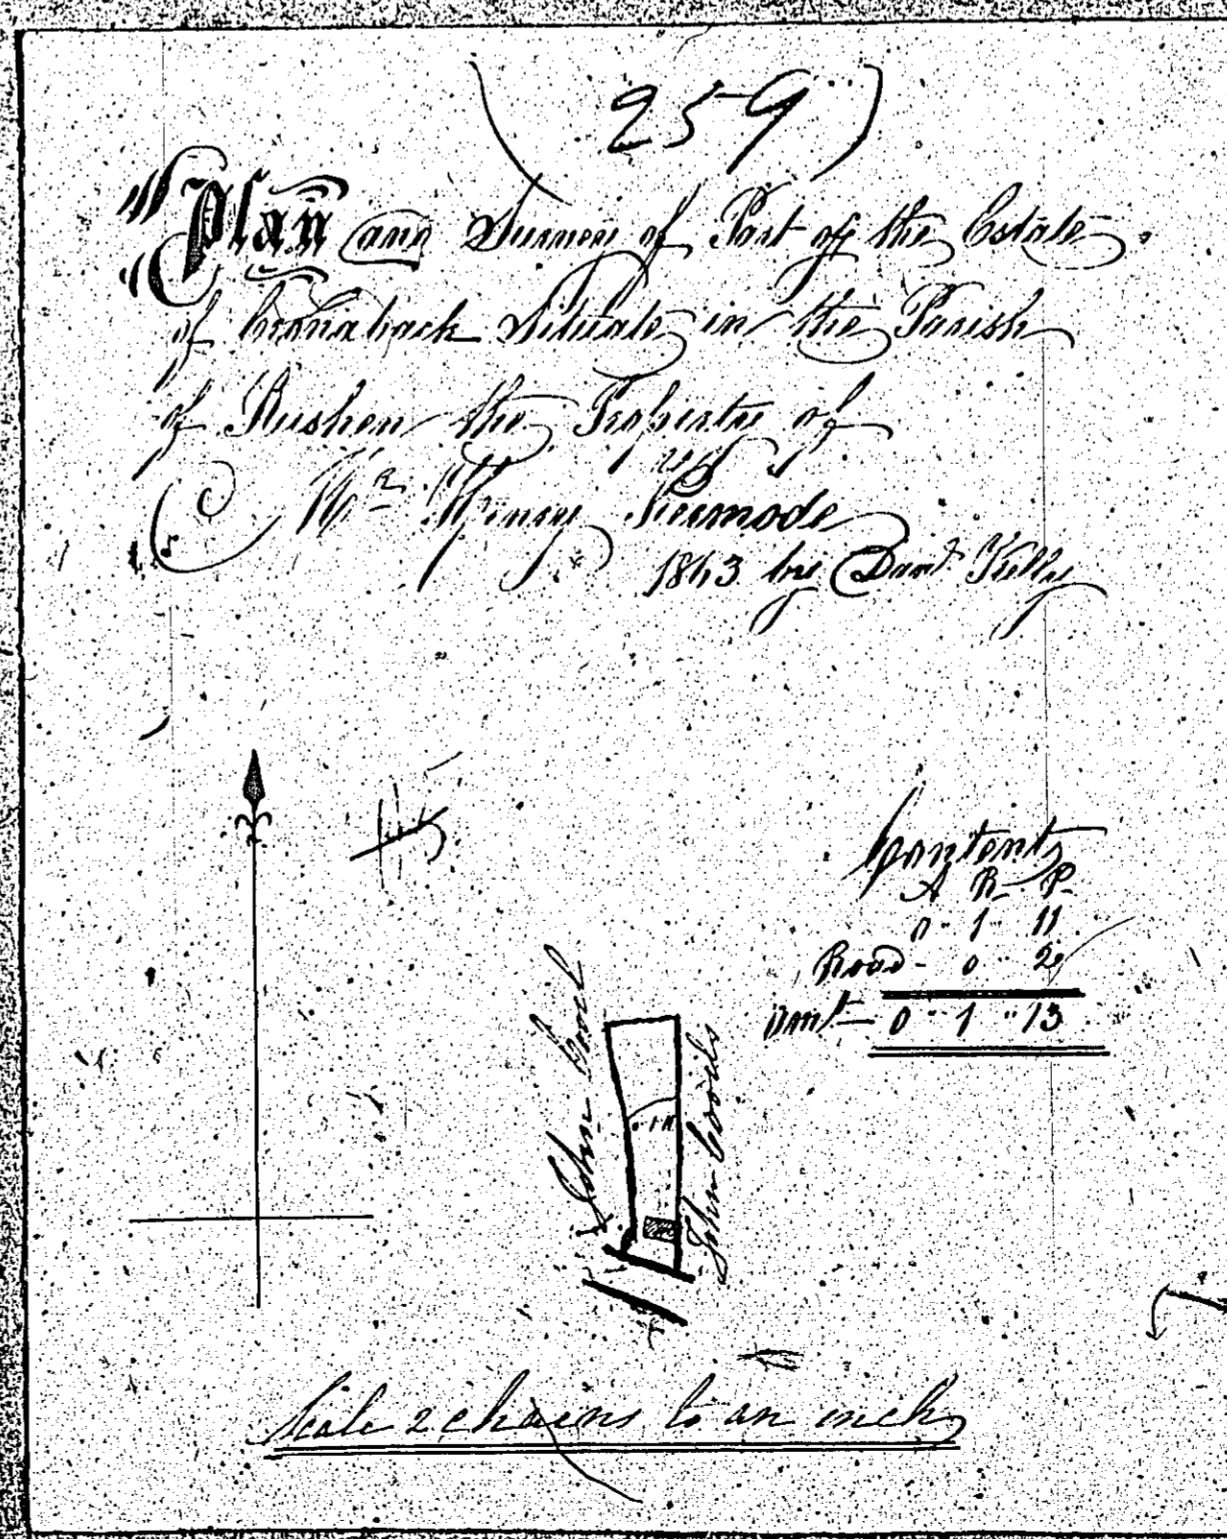 (259)
Plan and Survey of Part of the Estate
of Cronaback Situate in the Parish
of Rushen the Property of
Mr Henry Kermode
1863 by Danl Kelly
Contents
A R P
0 " 1 " 11
Road - 0 " 2
0 " 1 " 13
John
John
Scale 2 chains to an inch